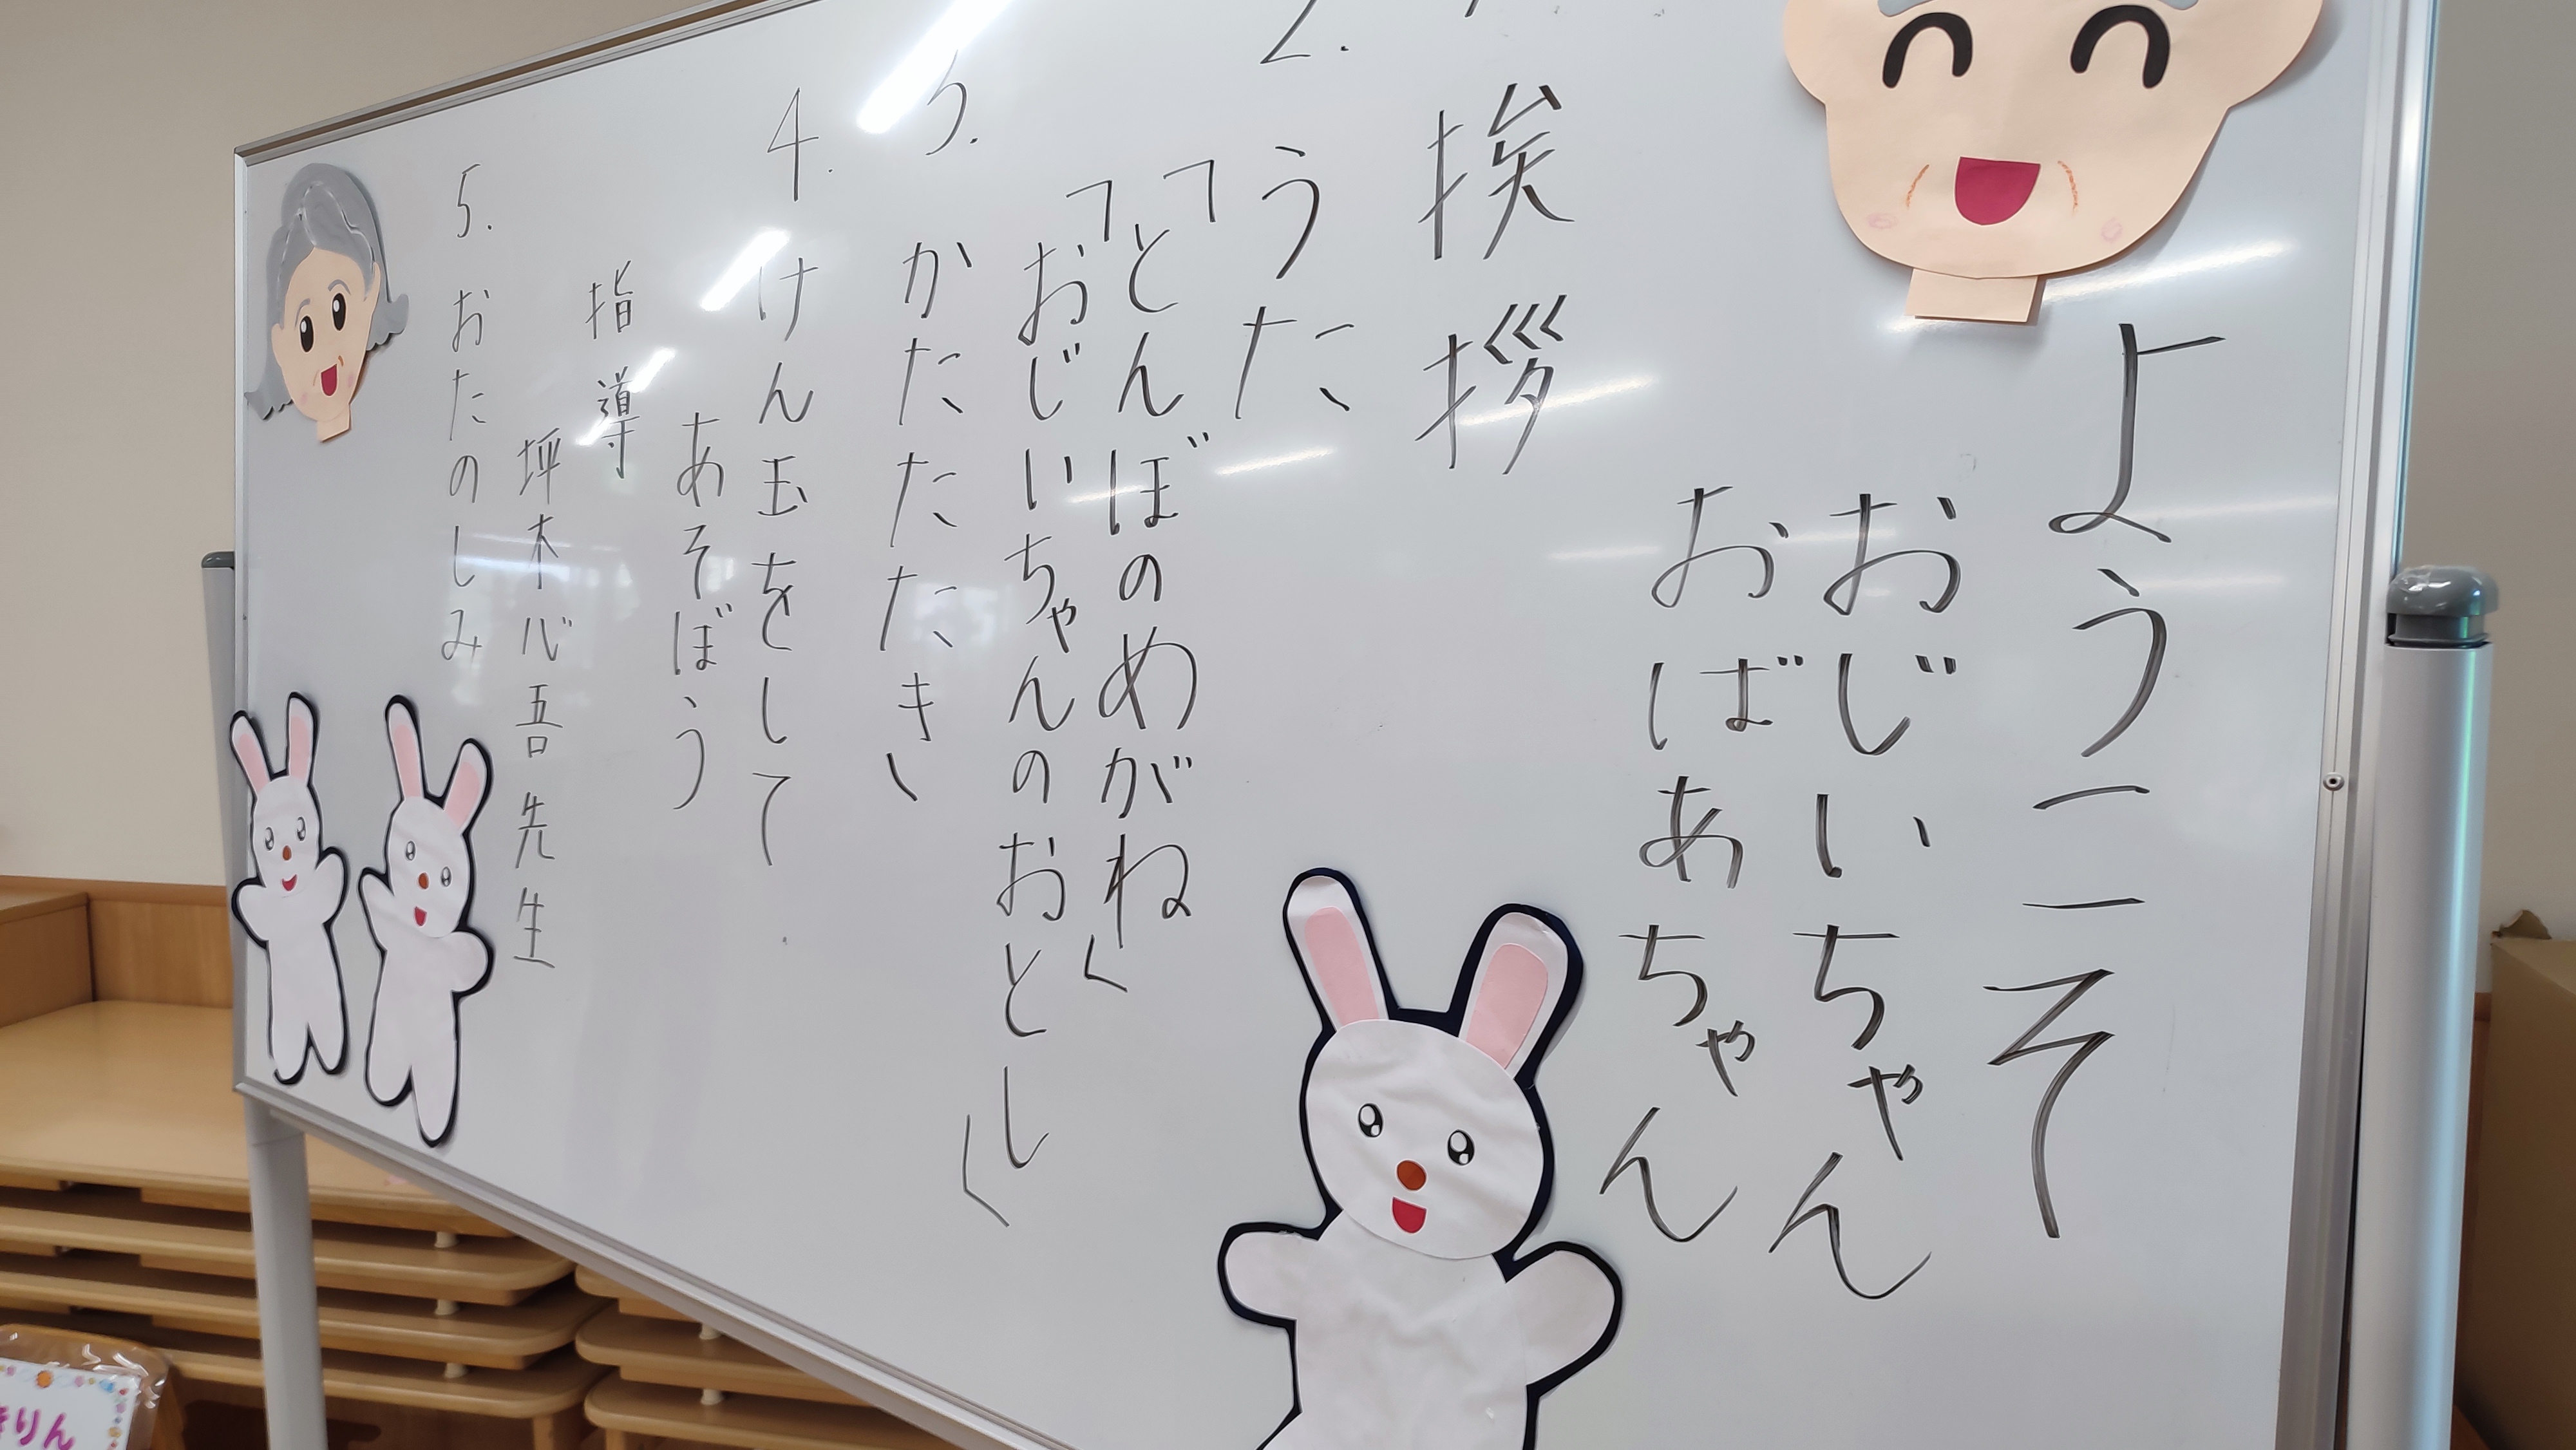 ようこそ
おじいちゃん
おばあちゃん
挨拶
2. うた
「とんぼのめがね」
「おじいちゃんのおとし」
3. かたたたき
4. けん玉をして
あそぼう
指導
坪木心吾先生
5. おたのしみ
きりん